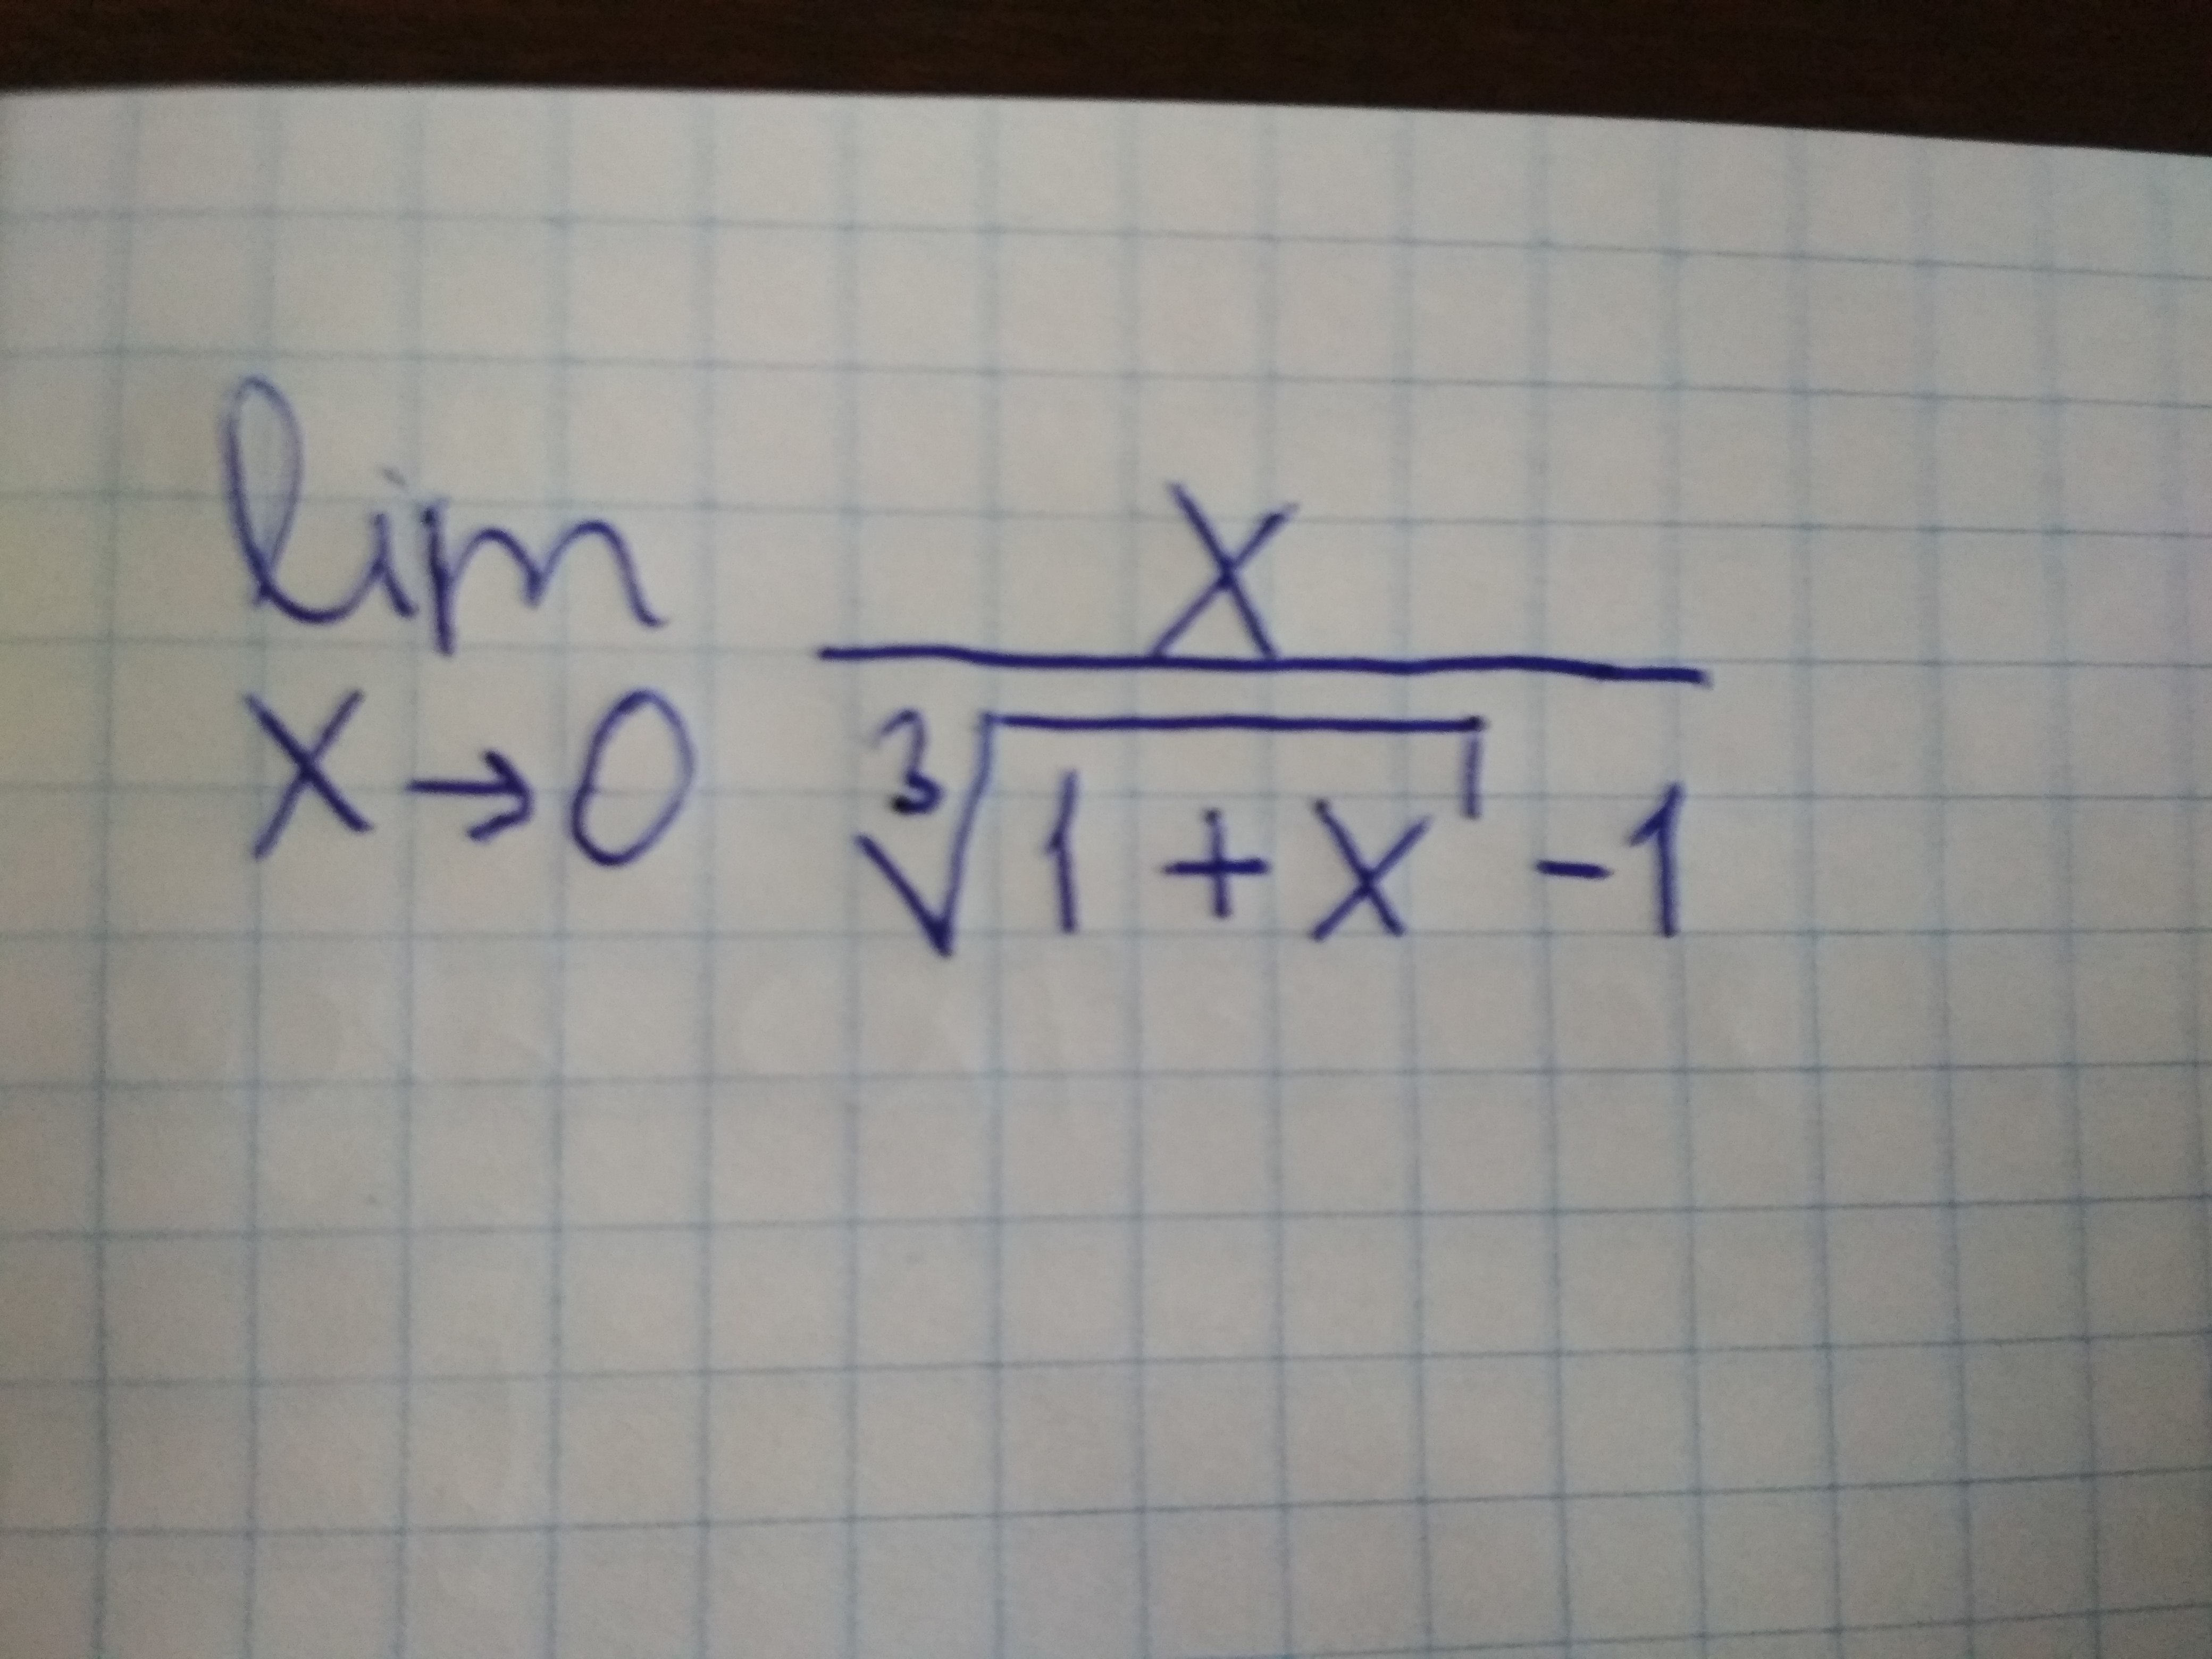 lim x
x→0 ∛(1+x) -1